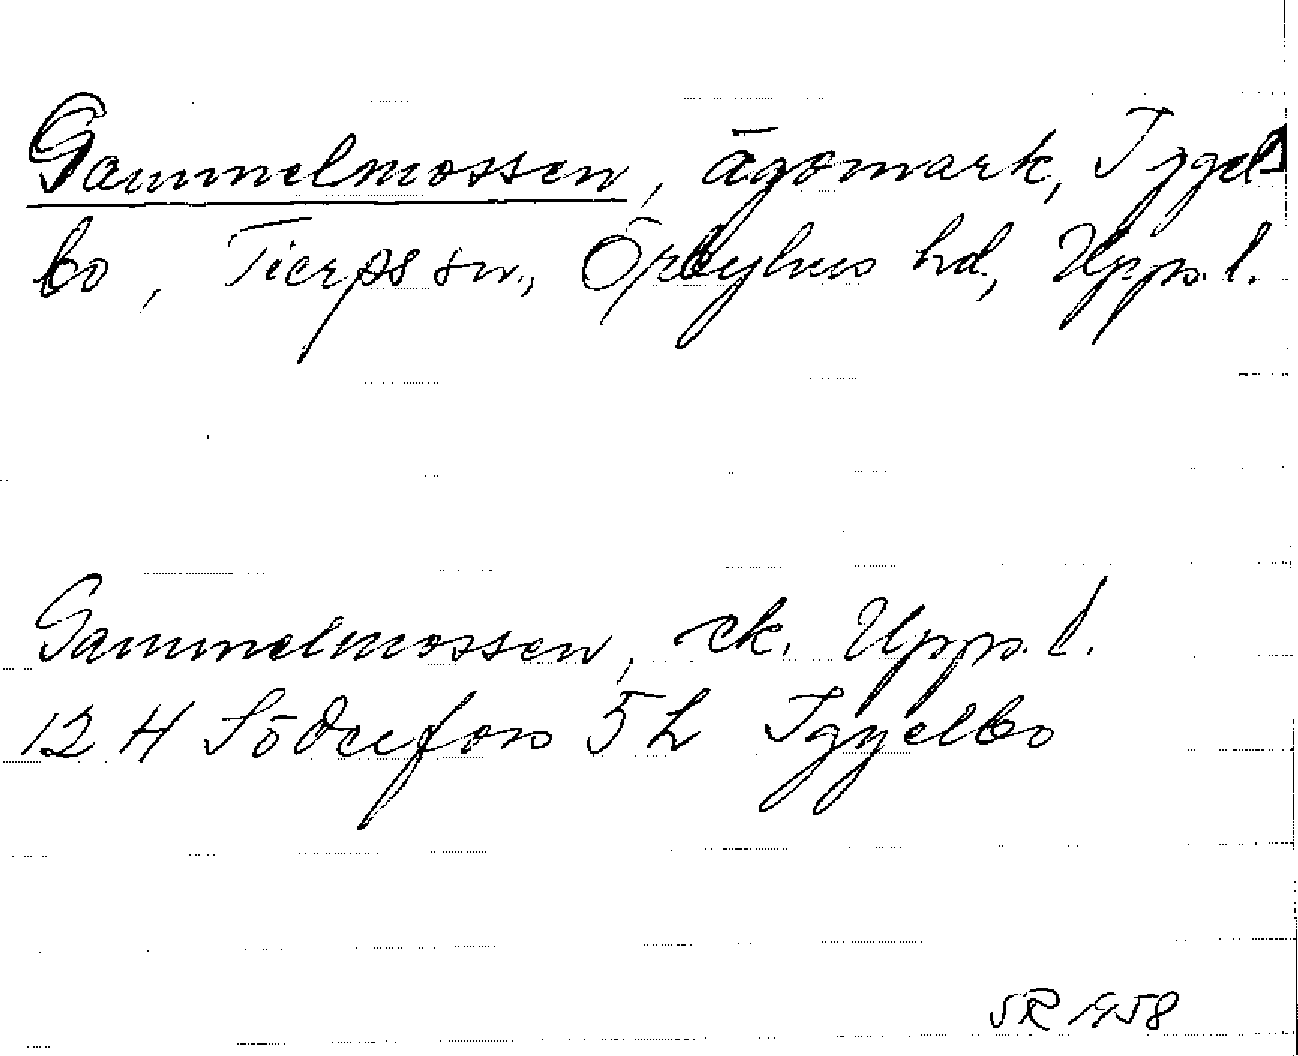 Gammelmossen, ägomark, Iggel-
bo, Tierps sn., Örbyhus hd., Upps. l.
Gammelmossen, ek. Upps. l.
12 H Söderfors 5 h Iggelbo
SR 1958